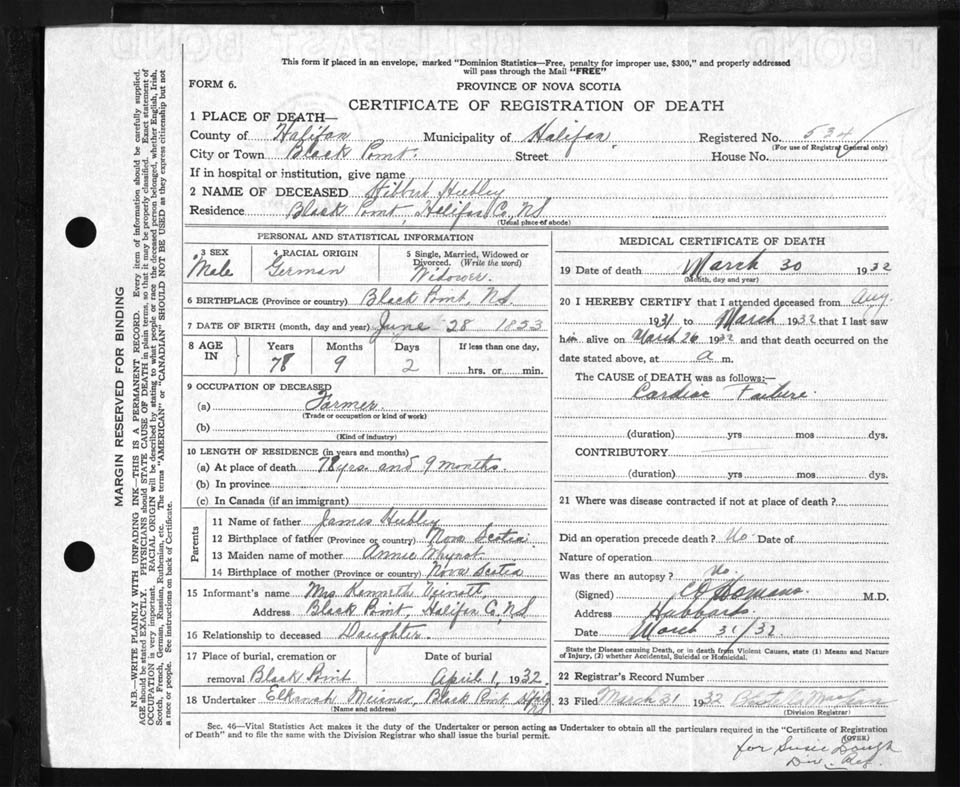 This form if placed in an envelope, marked "Dominion Statistics—Free, penalty for improper use, $300," and properly addressed
will pass through the Mail "FREE"
FORM 6.
PROVINCE OF NOVA SCOTIA
CERTIFICATE OF REGISTRATION OF DEATH
1 PLACE OF DEATH—
County of Halifax Municipality of Halifax Registered No. 534
(For use of Registrar General only)
City or Town Black Point. Street House No.
If in hospital or institution, give name
2 NAME OF DECEASED Hubley
Residence Black Point, Halifax Co., N.S.
(Usual place of abode)
PERSONAL AND STATISTICAL INFORMATION
3 SEX Male
4 RACIAL ORIGIN German
5 Single, Married, Widowed or Divorced. (Write the word) Widower.
6 BIRTHPLACE (Province or country) Black Point, N.S.
7 DATE OF BIRTH (month, day and year) June 28 1853
8 AGE IN Years 78 Months 9 Days 2 If less than one day, hrs. or min.
9 OCCUPATION OF DECEASED
(a) Farmer
(Trade or occupation or kind of work)
(b)
(Kind of industry)
10 LENGTH OF RESIDENCE (in years and months)
(a) At place of death 78 yrs. and 9 months.
(b) In province
(c) In Canada (if an immigrant)
Parents
11 Name of father James Hubley
12 Birthplace of father (Province or country) Nova Scotia
13 Maiden name of mother Annie Whynot
14 Birthplace of mother (Province or country) Nova Scotia
15 Informant's name Mrs Kenneth
Address Black Point Halifax Co, N.S.
16 Relationship to deceased Daughter.
17 Place of burial, cremation or removal Black Point Date of burial April 1, 1932.
18 Undertaker Elkanah Meisner, Black Point Hfx Co NS
(Name and address)
MEDICAL CERTIFICATE OF DEATH
19 Date of death March 30 1932
(Month, day and year)
20 I HEREBY CERTIFY that I attended deceased from Aug.
1931 to March 1932 that I last saw
him alive on March 26 1932 and that death occurred on the
date stated above, at a m.
The CAUSE of DEATH was as follows:—
Cardiac Failure.
(duration) yrs mos dys.
CONTRIBUTORY
(duration) yrs mos dys.
21 Where was disease contracted if not at place of death?
Did an operation precede death? No Date of
Nature of operation
Was there an autopsy? No.
(Signed) M.D.
Address Hubbards.
Date March 31/32.
State the Disease causing Death, or in death from Violent Causes, state (1) Means and Nature
of Injury, (2) whether Accidental, Suicidal or Homicidal.
22 Registrar's Record Number
23 Filed March 31 1932
(Division Registrar)
Sec. 46—Vital Statistics Act makes it the duty of the Undertaker or person acting as Undertaker to obtain all the particulars required in the "Certificate of Registration
of Death" and to file the same with the Division Registrar who shall issue the burial permit.
(OVER)
for Susie
Div. Reg.
MARGIN RESERVED FOR BINDING
N.B.—WRITE PLAINLY WITH UNFADING INK—THIS IS A PERMANENT RECORD. Every item of information should be carefully supplied.
AGE should be stated EXACTLY. PHYSICIANS should STATE CAUSE OF DEATH in plain terms, so that it may be properly classified. Exact statement of
OCCUPATION is very important. RACIAL ORIGIN will be described by stating to what people or race the deceased person belonged, whether English, Irish,
Scotch, French, German, Russian, Ruthenian, etc. The terms "AMERICAN" or "CANADIAN" SHOULD NOT BE USED as they express citizenship but not
a race or people. See instructions on back of Certificate.